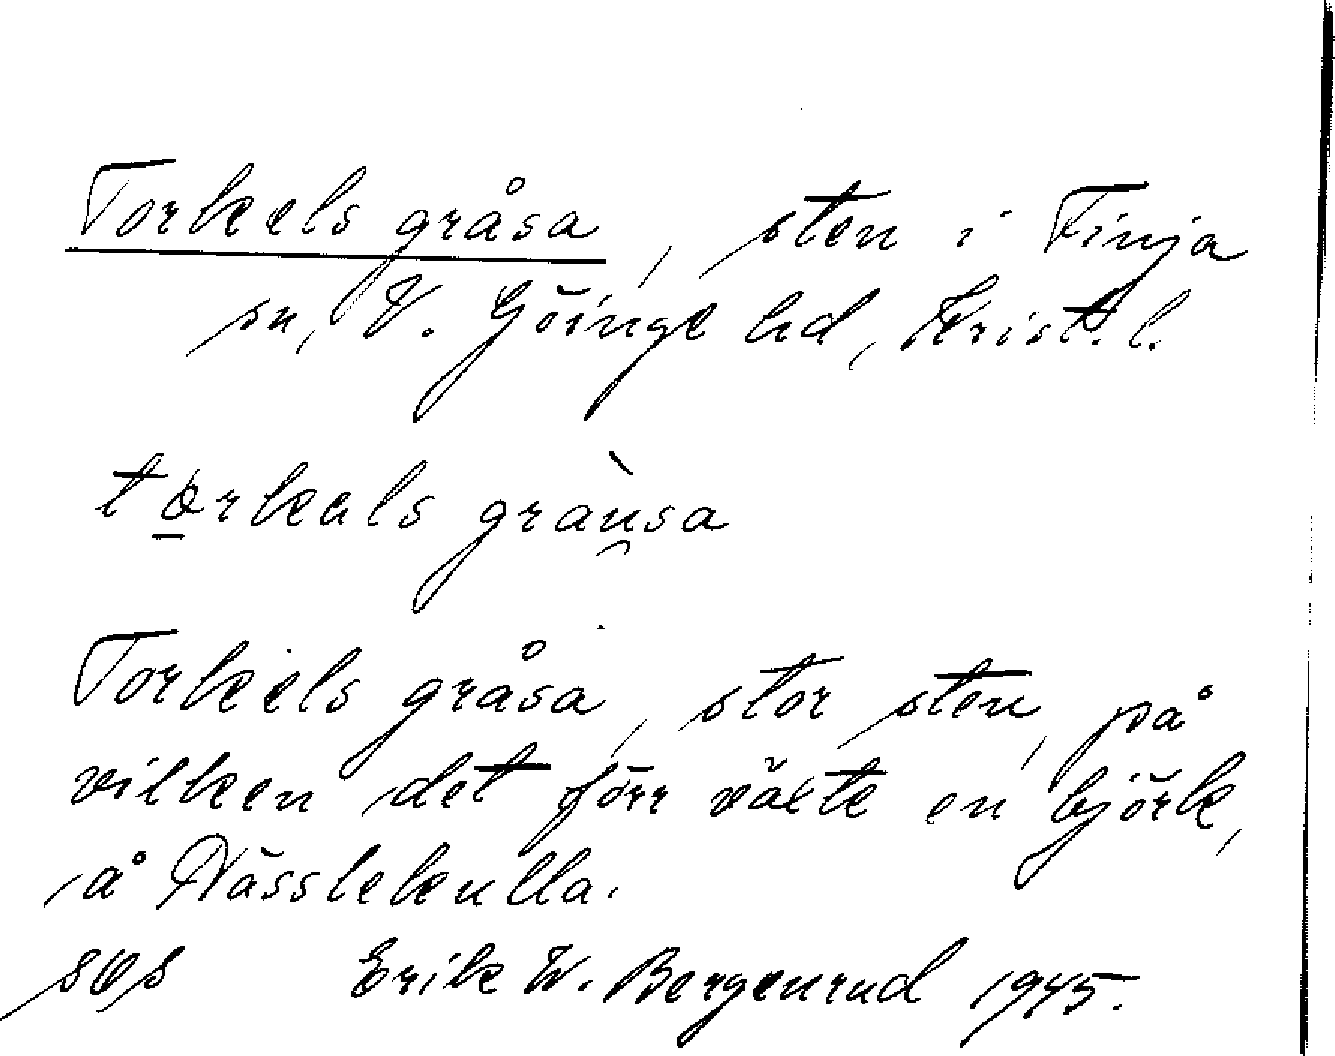 Torkels gråsa, sten i Finja
sn, V. Göinge hd, Krist. l.
grau̯sa
Torkels gråsa, stor sten, på
vilken det förr växte en björk,
å Nässlekulla.
Erik W. Bergenrud 1945.